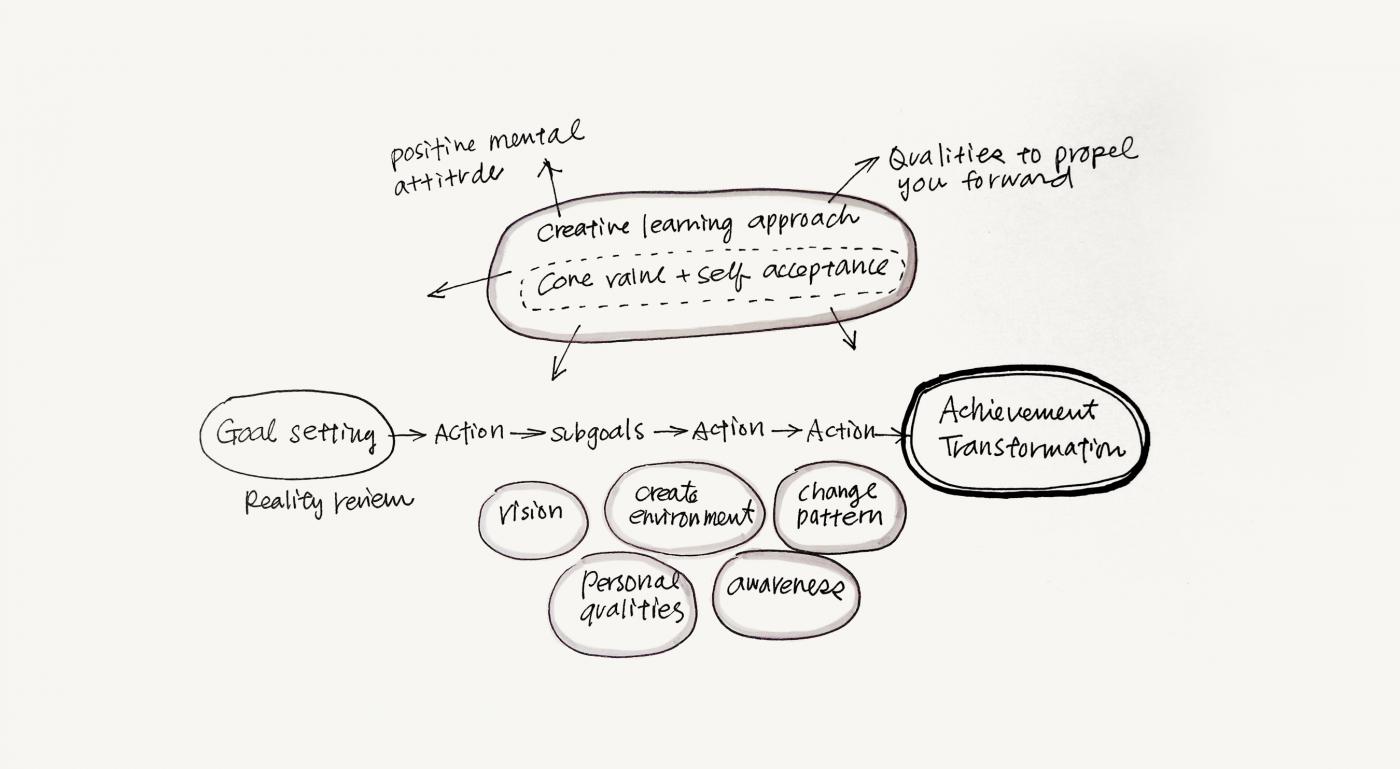 positive mental
attitude
Qualities to propel
you forward
Creative learning approach
Core value + self acceptance
Goal setting → Action → subgoals → Action → Action → Achievement
Transformation
Reality review
vision
create
environment
change
pattern
personal
qualities
awareness